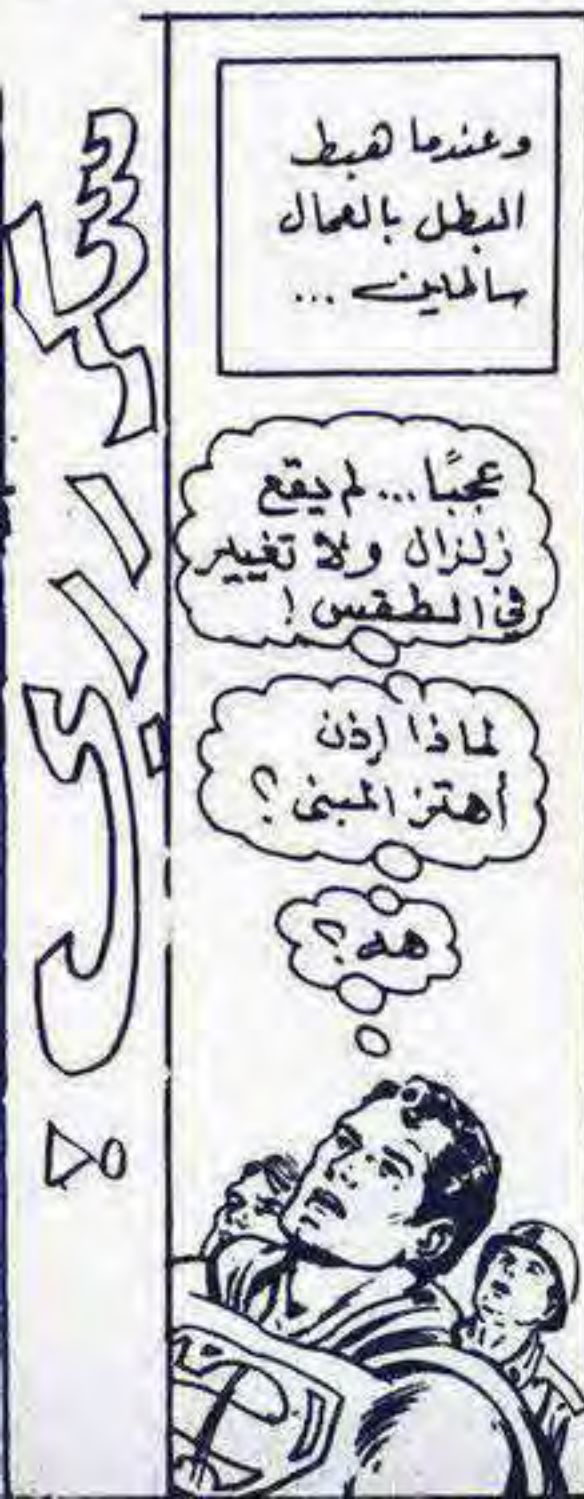 وعندما هبط
البطل بالعمال
سالمين ...
عجبًا ... لم يقع
زلزال ولا تغيير
في الطقس !
لماذا إذن
أهتز المبنى ؟
هه ؟